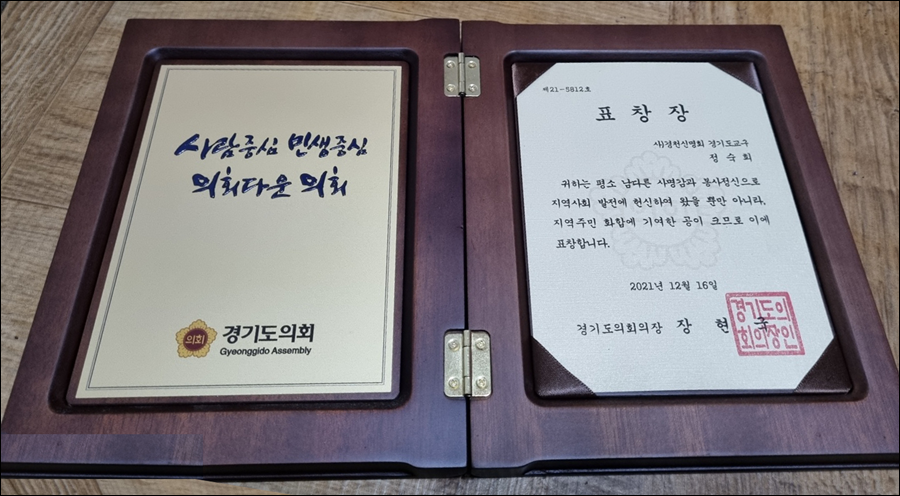 사람중심 민생중심
의회다운 의회
의회
경기도의회
Gyeonggido Assembly
제21-5812호
표창장
사)경천신명회 경기도교구
정숙희
귀하는 평소 남다른 사명감과 봉사정신으로
지역사회 발전에 헌신하여 왔을 뿐만 아니라,
지역주민 화합에 기여한 공이 크므로 이에
표창합니다.
2021년 12월 16일
경기도의회의장 장현국
경기도의
회의장인